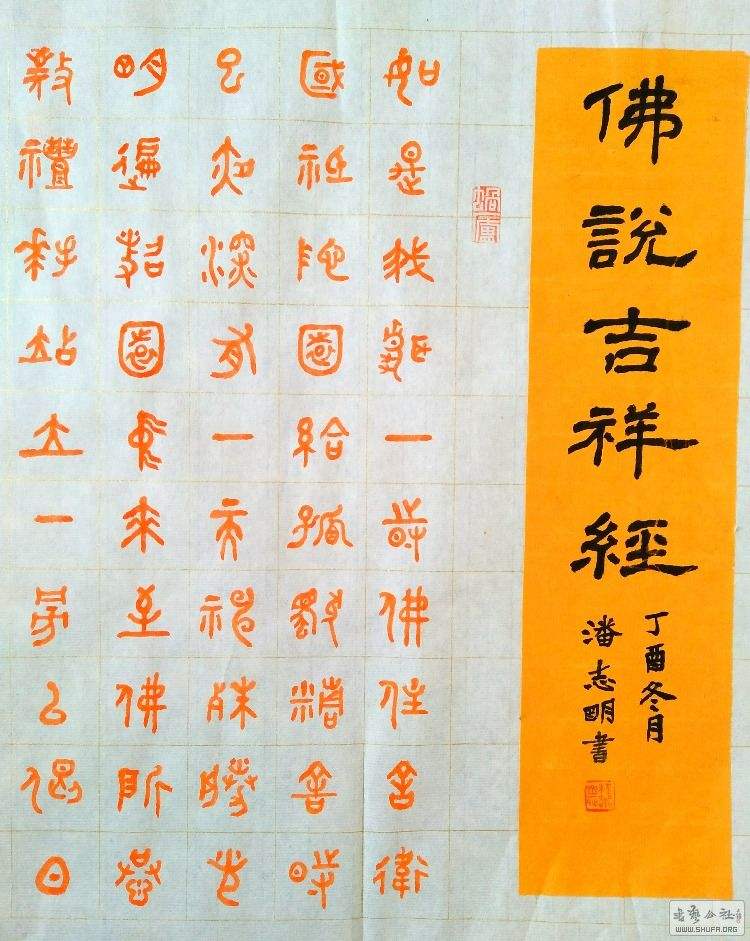 佛說吉祥經
丁酉冬月
潘志明書
如是我聞一時佛住舍衛
國祇陀園給孤獨精舍時
已夜深有一天神殊勝光
明遍照園來至佛所恭
敬禮拜站立一旁以偈曰
WWW.SHUFA.ORG